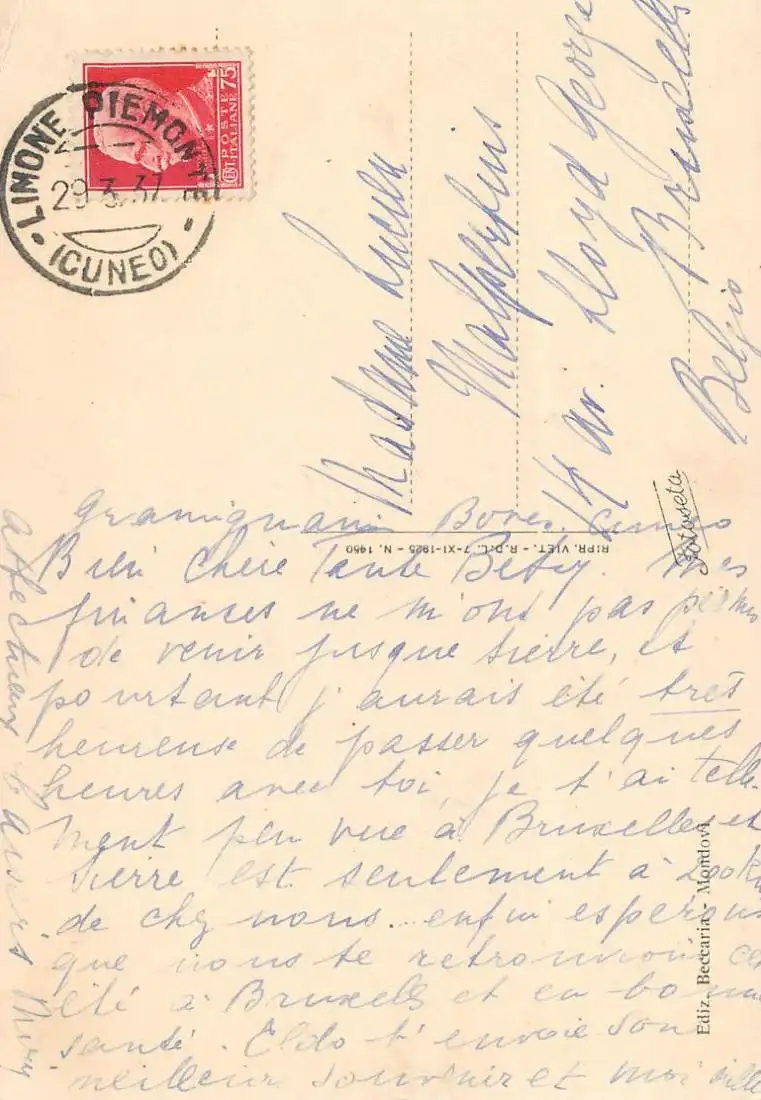 LIMONE PIEMONTE
29.3.37
(CUNEO)
POSTE ITALIANE 75
Madame Lucien
Malfderfus
14 av. Lloyd George
Bruxelles
Belgio
Fotoseta
RIPR. VIET. - R.D.L. 7-XI-1925 - N. 1950
Ediz. Beccaria - Mondovì
Gramignani Boves Cuneo
Bien Chère Tante Betsy. Mes
finances ne m'ont pas permis
de venir jusque Sierre, et
pourtant j'aurais été très
heureuse de passer quelques
heures avec toi, je t'ai telle-
ment peu vue à Bruxelles et
Sierre est seulement à 200 km
de chez nous. enfin espérons
que nous te retrouvions cet
été à Bruxelles et en bonne
santé. Eldo t'envoie son
meilleur souvenir et moi mille
affectueux baisers